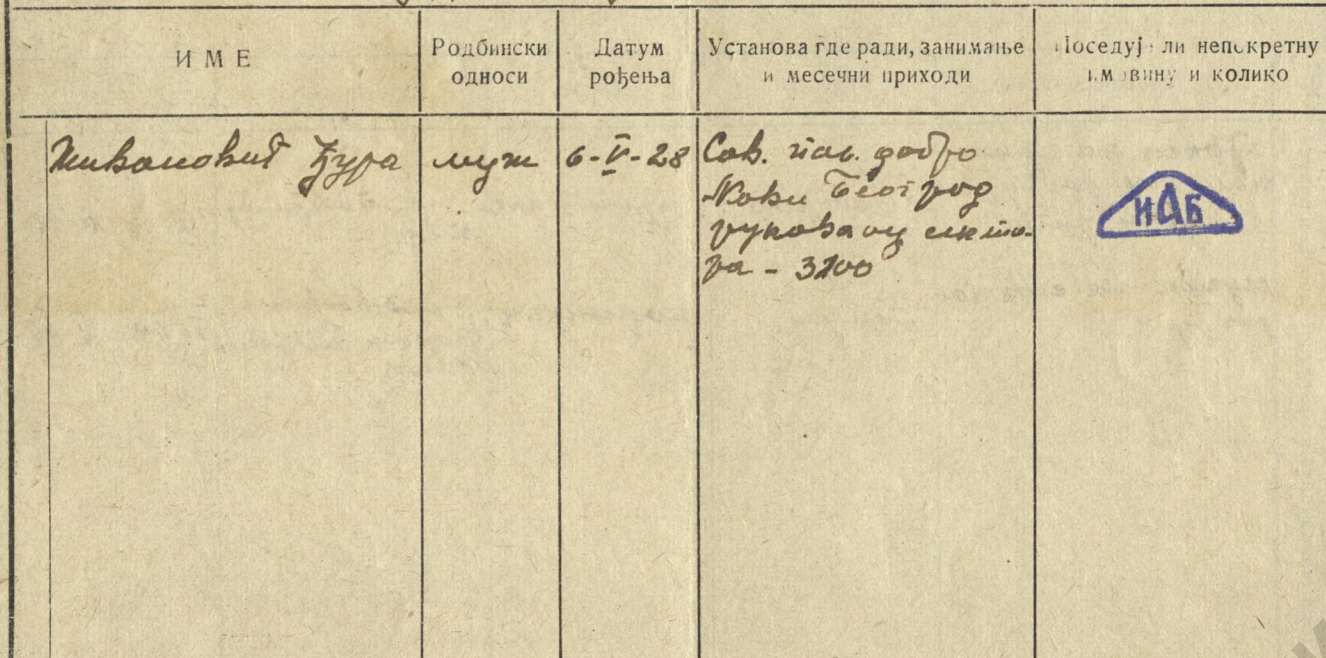 ИМЕ
Родбински
односи
Датум
рођења
Установа где ради, занимање
и месечни приходи
Поседује ли непокретну
имовину и колико
Живановић Ђура
муж
6-V-28
Сав. пољ. добро
Нови Београд
руковаоц секто-
ра - 3200
ИАБ